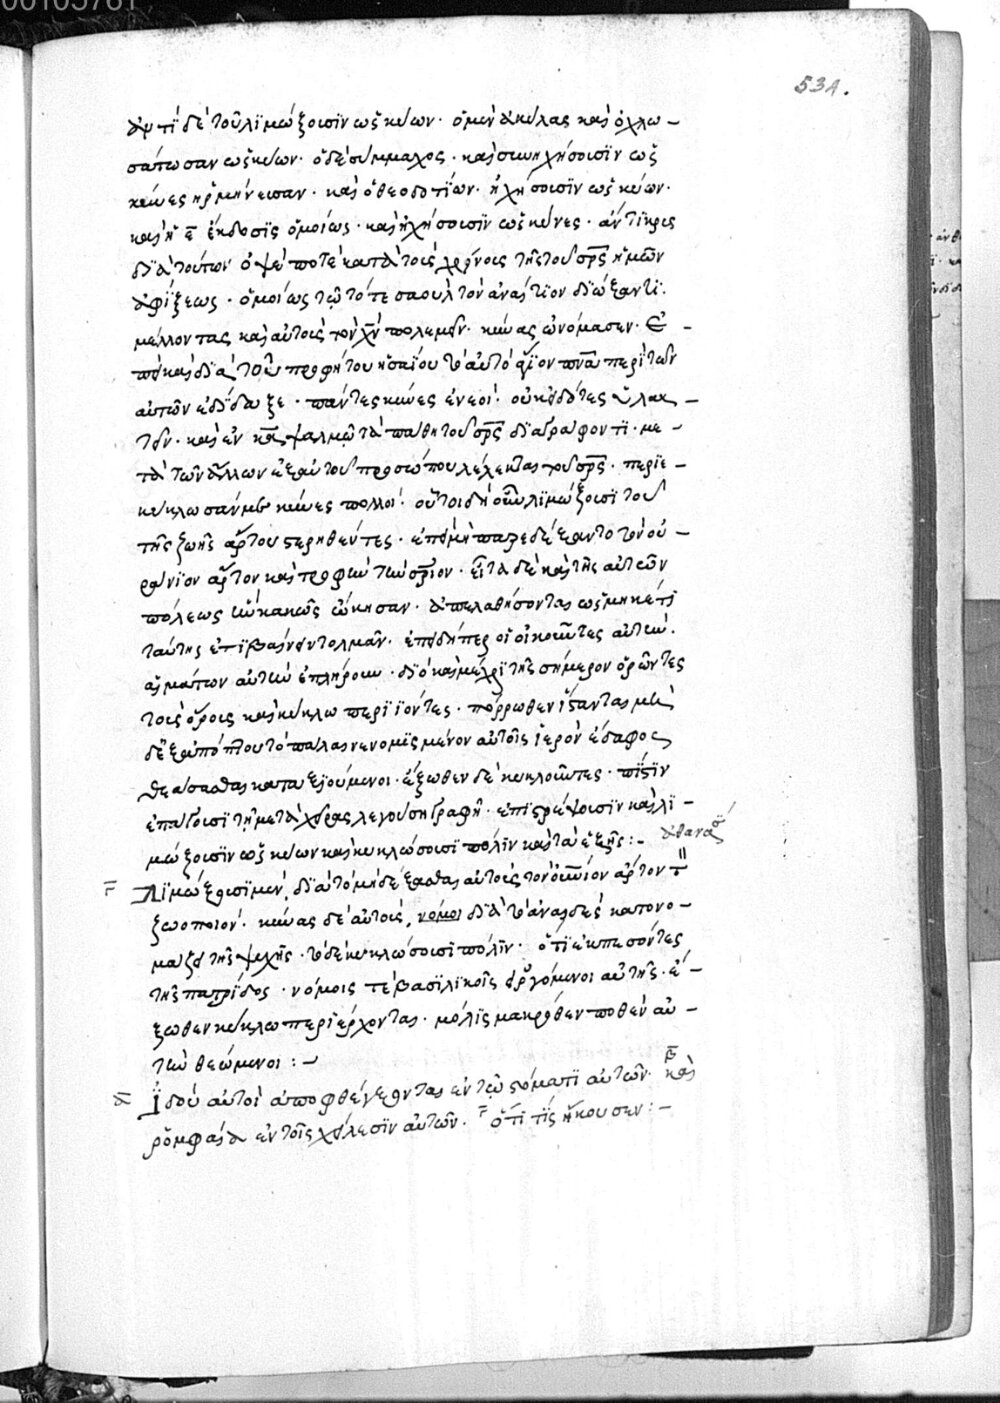 00105761
534.
ἀντὶ δὲ τοῦ λιμώξουσιν ὡς κύων· ὁ μὲν ἀκύλας καὶ ὀχλα-
σάτωσαν ὡς κύων· ὁ δὲ σύμμαχος· καὶ συνηχήσουσιν ὡς
κύνες ἡρμήνευσαν· καὶ ὁ θεοδοτίων· ἠχήσουσιν ὡς κύων·
καὶ ἡ ε̄ ἔκδοσις ὁμοίως· καὶ ἠχήσουσιν ὡς κύνες· ἄντικρυς
διὰ τούτων ὀψέ ποτε κατὰ τοὺς χρόνους τῆς τοῦ σρ̄ς ἡμῶν
ἀφίξεως· ὁμοίως τῶ τότε σαουλ τὸν ἀναίτιον διώξαντι·
μέλλοντας καὶ αὐτοὺς τὸν χ̄ν πολεμεῖν· κύνας ὠνόμασεν· ἐ-
πεὶ καὶ διὰ τοῦ προφήτου ἡσαΐου τὸ αὐτὸ ἅγιον πν̄α περὶ τῶν
αὐτῶν ἐδίδαξε· πάντες κύνες ἐνεοὶ· οὐκ εἰδότες ὑλακ-
τεῖν· καὶ ἐν κ̄α ψαλμῶ τὰ πάθη τοῦ σρ̄ς διαγράφοντι· με-
τὰ τῶν ἄλλων ἐξ αὐτοῦ προσώπου λέλεκται τοῦ σρ̄ς· περιε-
κύκλωσάν με κύνες πολλοί· οὗτοι δὴ οὖν λιμώξουσι τοῦ
τῆς ζωῆς ἄρτου στερηθέντες· ἐπεὶ μὴ παρεδέξαντο τὸν οὐ-
ράνιον ἄρτον καὶ τροφὴν τὴν σρ̄ιον· εἶτα δὲ καὶ τῆς αὐτῶν
πόλεως ἣν κακῶς ὤκησαν· ἀπελαθήσονται ὡς μηκέτι
ταύτης ἐπιβαίνειν τολμᾶν· ἐπειδήπερ οἱ οἰκοῦντες αὐτὴν·
αἱμάτων αὐτὴν ἐπλήρουν· διὸ καὶ μέχρι τῆς σήμερον ὁρῶντες
τοὺς ὅρους καὶ κύκλω περιϊόντες· πόρρωθεν ἵστανται μὲν
δὲ ἐξ ἀπόπτου τὸ πάλαι νενομισμένον αὐτοῖς ἱερὸν ἔδαφος
θεάσασθαι καταξιούμενοι· ἔξωθεν δὲ κυκλοῦντες· πίστιν
ἐπάγουσι τῇ μετὰ χεῖρας λεγούσῃ γραφῇ· ἐπιστρέψουσιν καὶ λι-
μώξουσιν ὡς κύων καὶ κυκλώσουσι πόλιν καὶ τὰ ἑξῆς :- ἀθανασ
γ̄ Λιμώξουσι μὲν, διὰ τὸ μὴ δέξασθαι αὐτοὺς τὸν οὐν̄ιον ἄρτον τ
ζωοποιόν· κύνας δὲ αὐτοὺς, νόμοι διὰ τὸ ἀναιδὲς κατονο-
μάζει τῆς ψυχῆς· τὸ δὲ κυκλώσουσι πόλιν· ὅτι ἐκπεσόντες
τῆς πατρίδος· νόμοις τε βασιλικοῖς εἰργόμενοι αὐτῆς· ἔ-
ξωθεν κύκλω περιέρχονται· μόλις μακρόθεν ποθὲν αὐ-
τὴν θεώμενοι :-
ᾱ Ἰδοὺ αὐτοὶ ἀποφθέγξονται ἐν τῶ στόματι αὐτῶν· β̄ καὶ
ῥομφαία ἐν τοῖς χείλεσιν αὐτῶν· γ̄ ὅτι τίς ἤκουσεν :-